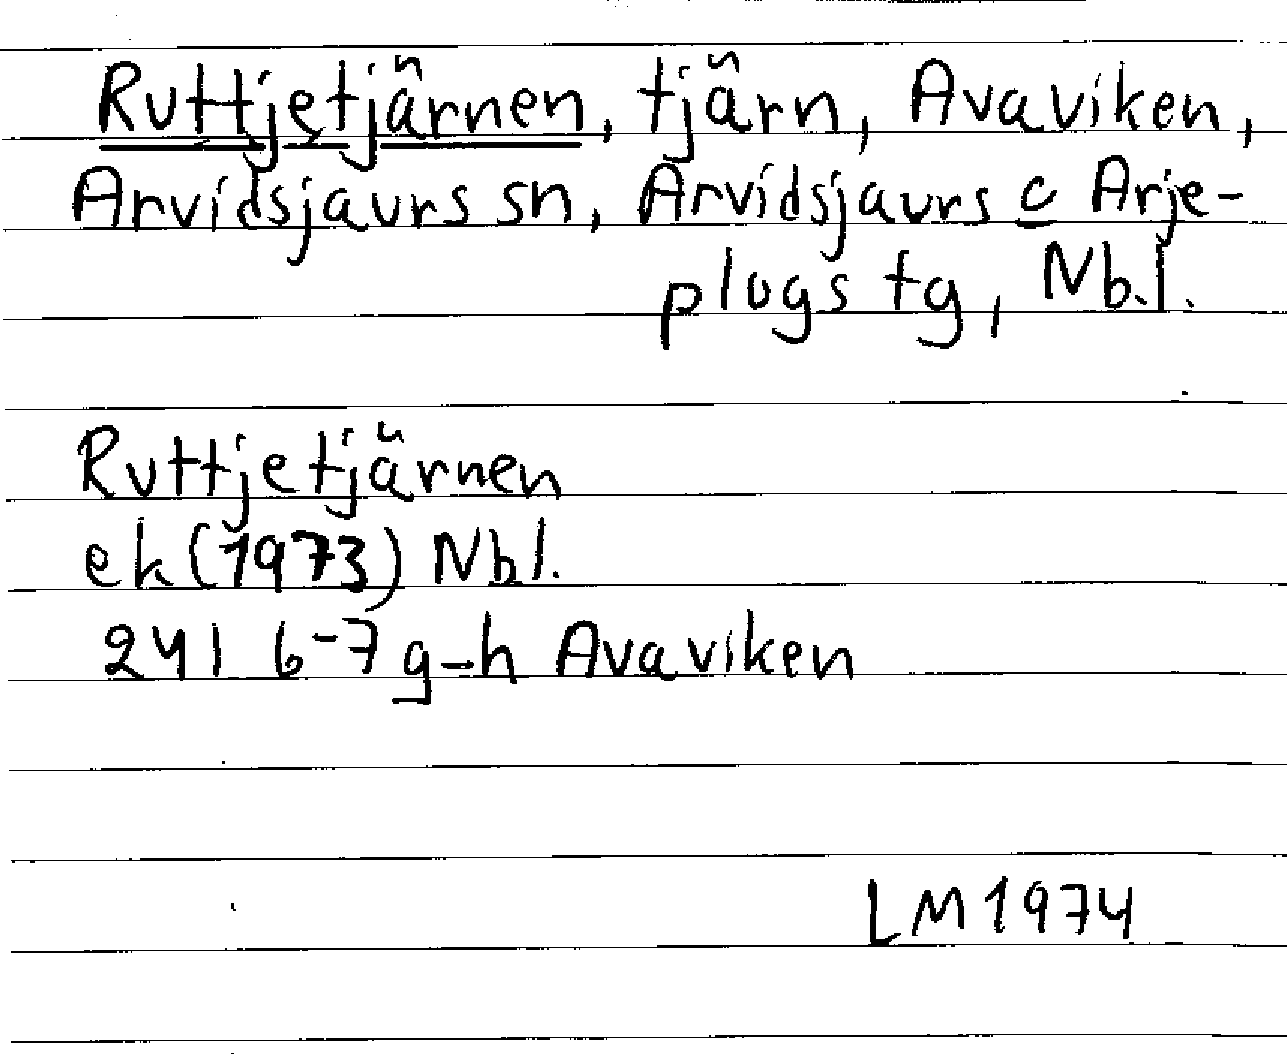 Ruttjetjärnen, tjärn, Avaviken,
Arvidsjaurs sn, Arvidsjaurs o Arje-
plogs tg, Nb.l.
Ruttjetjärnen
ek (1973) Nbl.
24I 6-7 g-h Avaviken
LM 1974